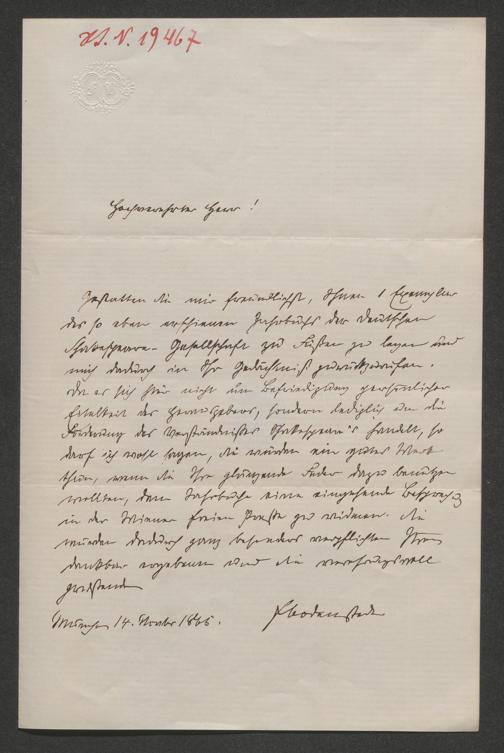 H.I.N. 19467
Hochverehrter Herr!
Gestatten Sie mir freundlichst, Ihnen 1 Exemplar
des so eben erschienen Jahrbuchs der Deutschen
Shakespeare-Gesellschaft zu Füßen zu legen und
mich dadurch in Ihr Gedächtniß zurückzurufen.
Da es sich hier nicht um Befriedigung persönlicher
Eitelkeit des Herausgebers, sondern lediglich um die
Förderung des Verständnisses Shakespeare's handelt, so
darf ich wohl sagen, Sie würden ein gutes Werk
thun, wenn Sie Ihre glänzende Feder dazu benutzen
wollten, dem Jahrbuche eine eingehende Besprechg
in der Wiener freien Presse zu widmen. Sie
würden dadurch ganz besonders verpflichten Ihren
dankbar ergebenen und Sie verehrungsvoll
grüßenden
München 14. Novbr 1865. FBodenstedt